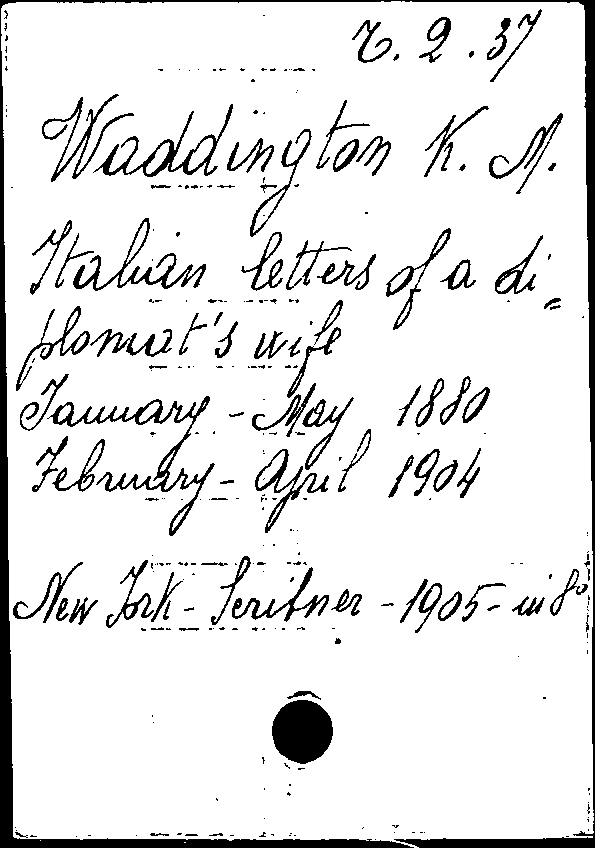 7. 2. 37
Waddington K. M.
Italian letters of a di=
plomat's wife
January - May 1880
February - April 1904
New York - Scribner - 1905 - in 8º